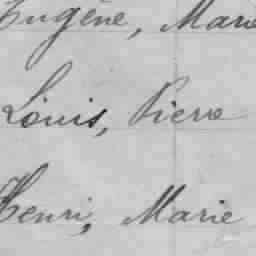 Eugène, Marie
Louis, Pierre
Henri, Marie